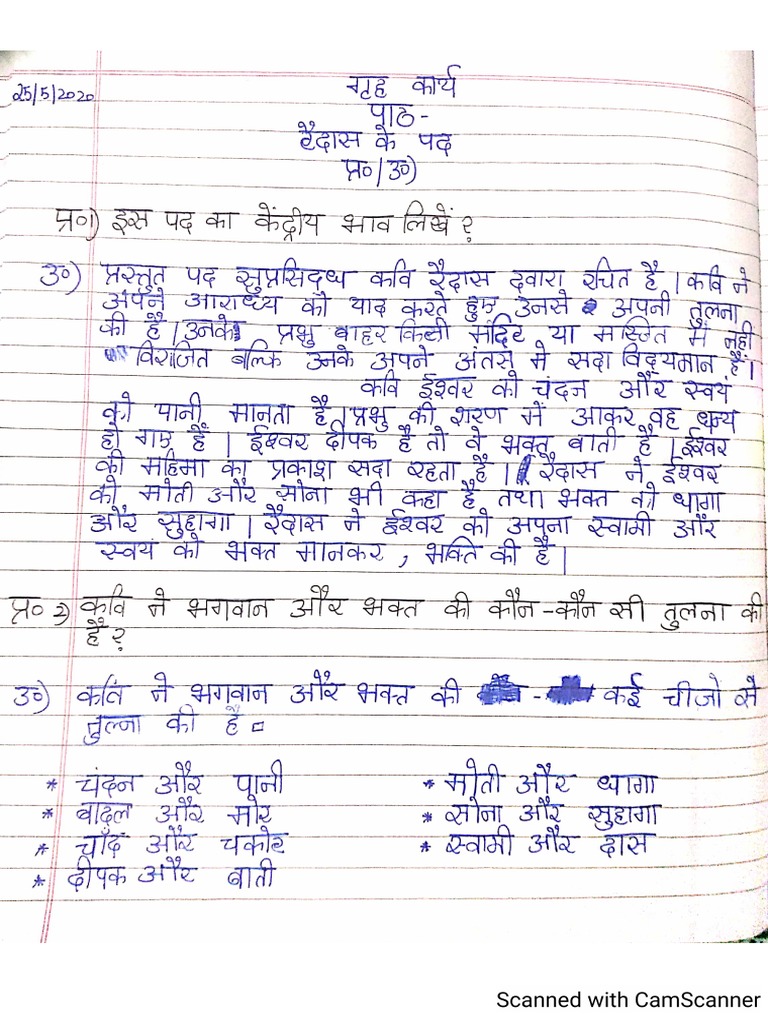 25/5/2020
गृह कार्य
पाठ-
रैदास के पद
प्र०/उ०)
प्र०१) इस पद का केंद्रीय भाव लिखें?
उ०) प्रस्तुत पद सुप्रसिद्ध कवि रैदास द्वारा रचित है। कवि ने
अपने आराध्य को याद करते हुए उनसे अपनी तुलना
की है। उनके प्रभु बाहर किसी मंदिर या मस्जित में नही
विराजित बल्कि उनके अपने अंतस मे सदा विद्यमान हैं।
कवि ईश्वर को चंदन और स्वयं
को पानी मानता है। प्रभु की शरण में आकर वह धन्य
हो गए हैं। ईश्वर दीपक है तो वे भक्त बाती है। ईश्वर
की महिमा का प्रकाश सदा रहता है। रैदास ने ईश्वर
को मोती और सोना भी कहा है तथा भक्त को धागा
और सुहागा। रैदास ने ईश्वर को अपना स्वामी और
स्वयं को भक्त मानकर, भक्ति की है।
प्र० २) कवि ने भगवान और भक्त की कौन-कौन सी तुलना की
है?
उ०) कवि ने भगवान और भक्त की - कई चीजो से
तुल्ना की है
* चंदन और पानी
* बादल और मोर
* चाँद और चकोर
* दीपक और बाती
* मोती और धागा
* सोना और सुहागा
* स्वामी और दास
Scanned with CamScanner